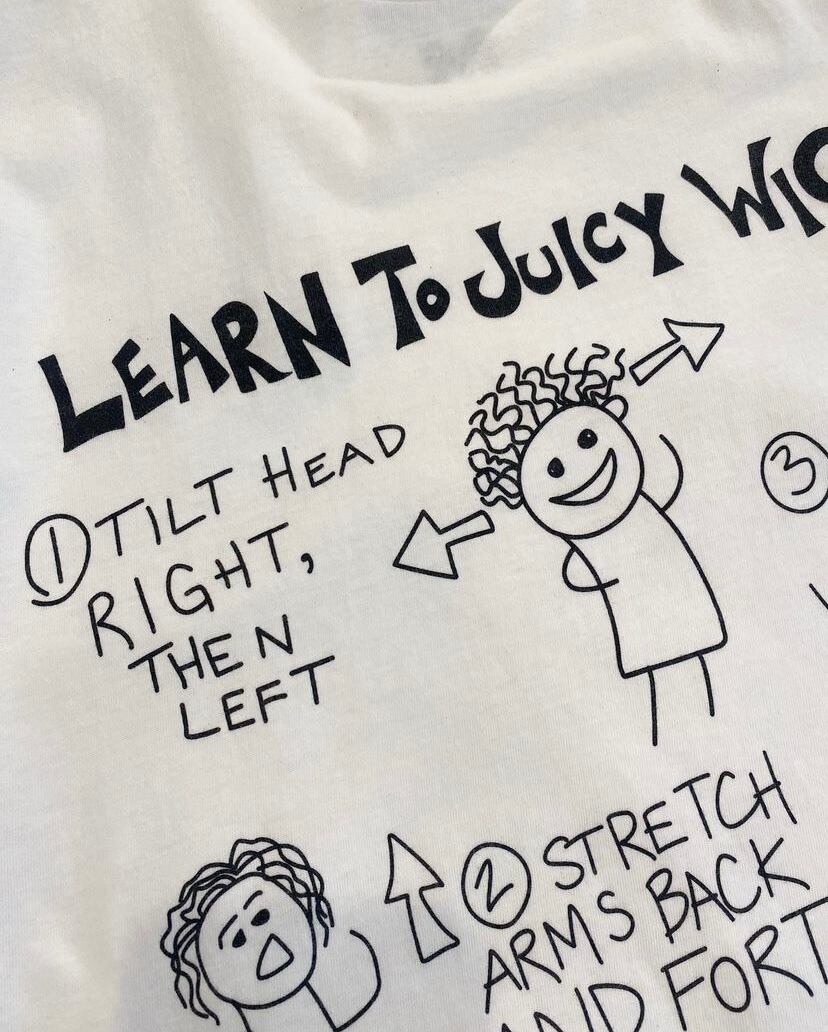 LEARN TO JUICY
① TILT HEAD
RIGHT,
THEN
LEFT
② STRETCH
ARMS BACK
AND
③